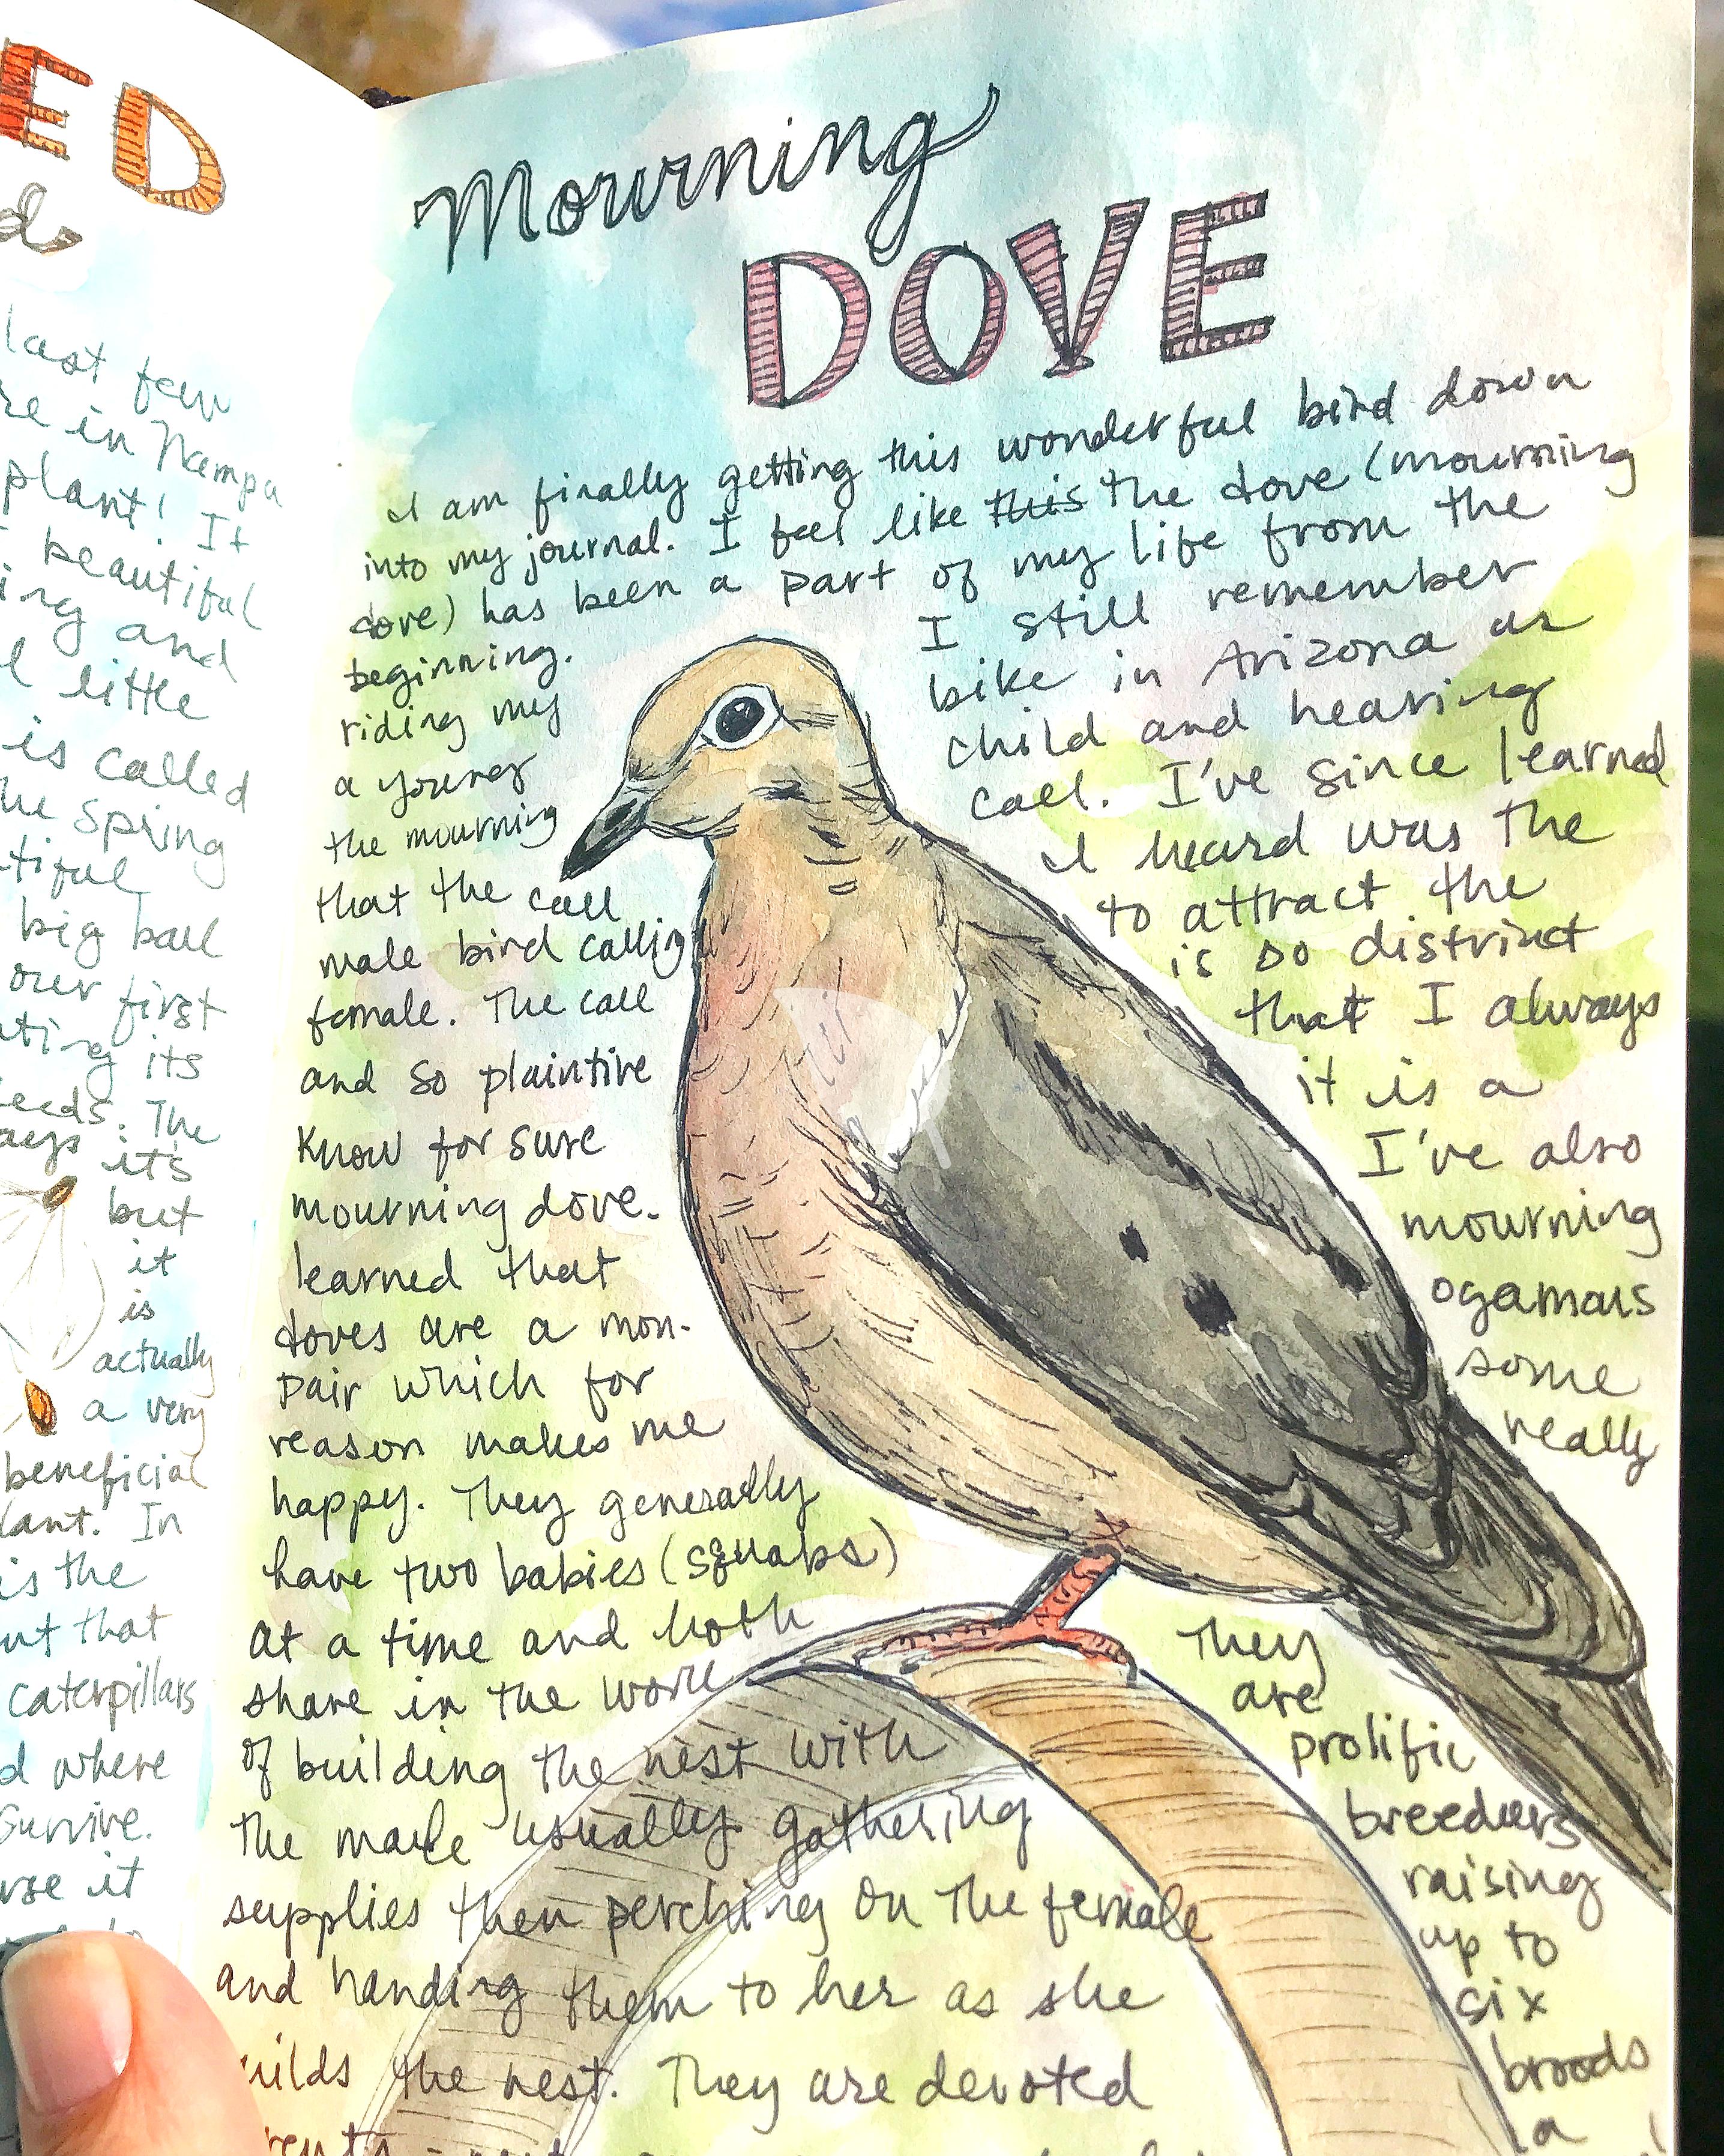 ED
last few
re in Nampa
plant! It
beautiful
ing and
l little
is called
he spring
tiful
big ball
our first
ating its
eeds. The
ays it's
but
it
is
actually
a very
beneficial
lant. In
is the
ut that
caterpillars
d where
Survive.
rse it
Mourning
DOVE
I am finally getting this wonderful bird down
into my journal. I feel like this the dove (mourning
dove) has been a part of my life from the
beginning. I still remember
riding my bike in Arizona as
a young child and hearing
the mourning call. I've since learned
that the call I heard was the
male bird callig to attract the
female. The call is so distrinct
and so plaintive that I always
know for sure it is a
mourning dove. I've also
learned that mourning
doves are a mon- ogamous
pair which for some
reason makes me really
happy. They generally
have two babies (squabs)
at a time and both They
share in the work are
of building the nest with prolific
the male usually gathering breeders
supplies then perching on the female raising
up to
and handing them to her as she six
uilds the nest. They are devoted broods
a